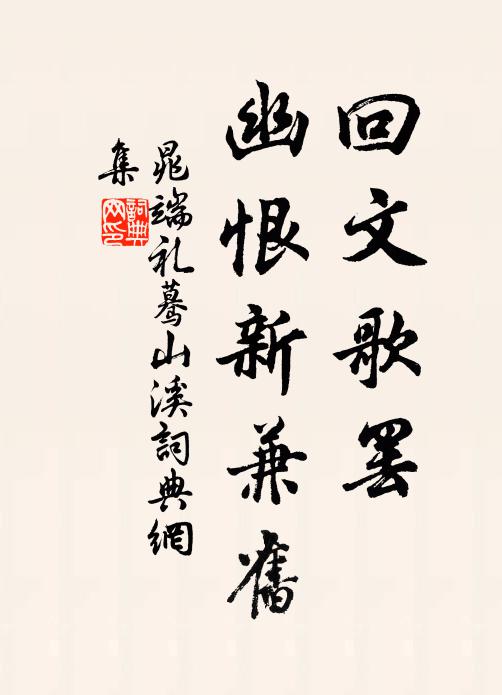 回文歌罢
幽恨新兼舊
晁端礼蓦山溪詞典網
集
詞典
网印